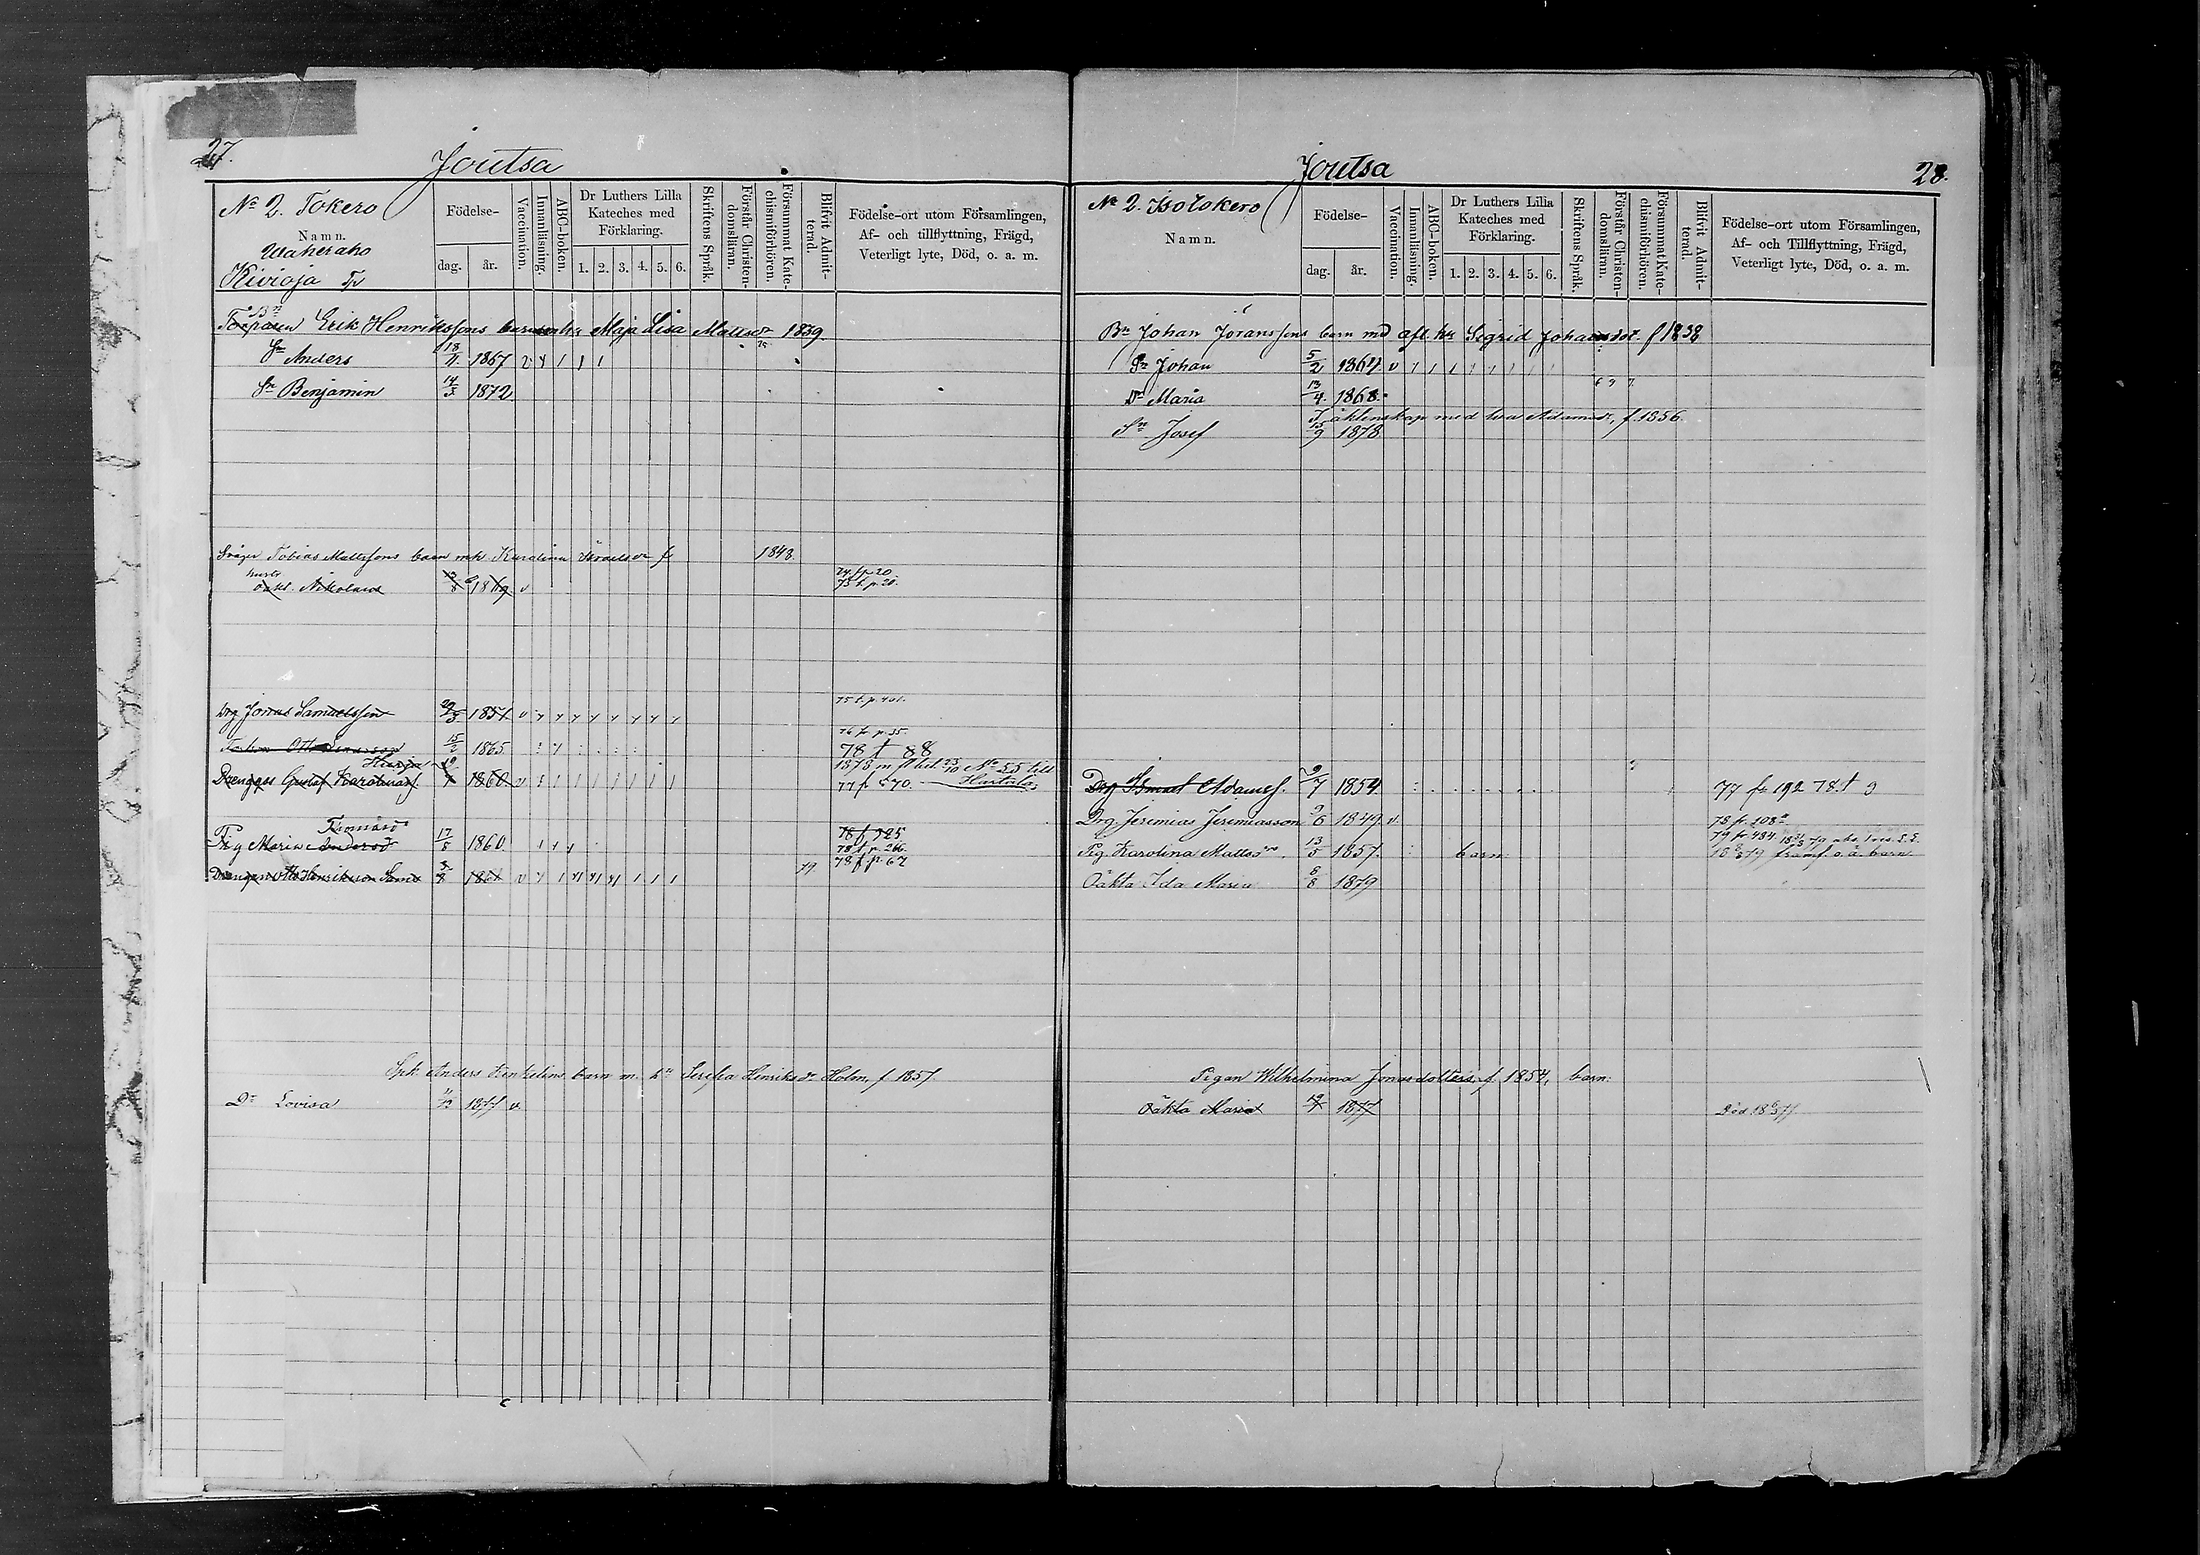 27.
Joutsa
№ 2. Tokero
Namn.
Waheraho
Kivioja Tp
Födelse-
dag. år.
Vaccination.
Innanläsning.
ABC-boken.
Dr Luthers Lilla
Kateches med
Förklaring.
1. 2. 3. 4. 5. 6.
Skriftens Språk.
Förstår Christen-
domsläran.
Försummat Kate-
chismiförhören.
Blifvit Admit-
terad.
Födelse-ort utom Församlingen,
Af- och tillflyttning, Frägd,
Veterligt lyte, Död, o. a. m.
Torparen Erik Henrikssons barn Maja Lisa Mattsdr 1839.
Sn Anders 18/11. 1867 v
Sn Benjamin 14/3 1872
Svåger Tobias Mattssons barn mh. Karolina f 1848.
Nikolaus 1869 v
74 f p 20
75 t. p. 20.
Drg Jonas Samuelsson 1851 v
75 t. p. 401.
76 fr p. 35.
15/2 1865
78 † 88
Drengen Gustaf Karolinas. 1860. v
77 f 570. Hartola
Pig Maria 17/5 1860
78 f 925
78 t p. 266.
Drengen Otto Henriksson 1861 v
79.
78 f p. 67
Spk. Anders Henkelins barn m. hu Serefia Henriksdr Holm, f. 1857.
Dr Lovisa 1877 v.
Joutsa
28.
№ 2. Isotokero
Namn.
Födelse-
dag. år.
Vaccination.
Innanläsning.
ABC-boken.
Dr Luthers Lilla
Kateches med
Förklaring.
1. 2. 3. 4. 5. 6.
Skriftens Språk.
Förstår Christen-
domsläran.
Försummat Kate-
chismiförhören.
Blifvit Admit-
terad.
Födelse-ort utom Församlingen,
Af- och Tillflyttning, Frägd,
Veterligt lyte, Död, o. a. m.
Bn Johan Göranssons barn med afl. hu Sigrid Johansdot. f 1838
Sn Johan 5/2 1864. v
6 9 7.
Dr Maria 13/4. 1868.
I äktenskap med Eva Adamsdr, f. 1856.
Sn Josef 15/9 1878
Drg Ismael Adamss. 9/7 1854
77 fr 192 78. t
Drg Jerimias Jerimiasson 9/6 1849. v.
78 fr. 108
Pig. Karolina Mattsdr. 13/5 1857. barn
79 fr 484
Oäkta Ida Maria 8/8 1879
Pigan Wilhelmina Jonasdotters, f. 1854, barn:
Oäkta Maria 19/1 1877